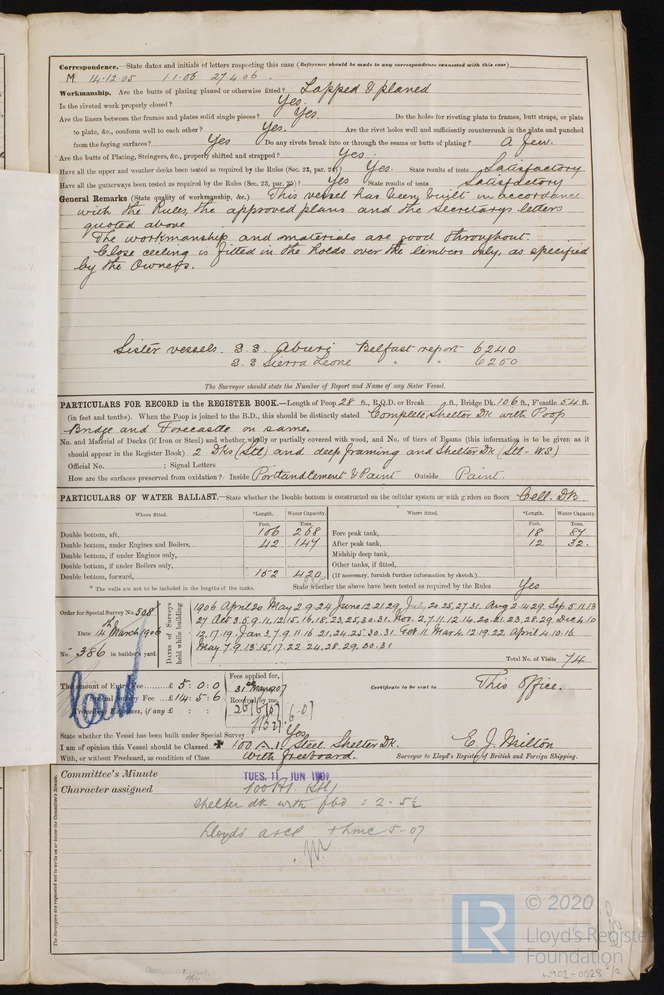 Correspondence.—State dates and initials of letters respecting this case (Reference should be made to any correspondence connected with this case)
M 14.12.05 1.1.06 27.4.06.
Workmanship. Are the butts of plating planed or otherwise fitted? Lapped & planed
Is the riveted work properly closed? Yes.
Are the liners between the frames and plates solid single pieces? Yes. Do the holes for riveting plate to frames, butt straps, or plate
to plate, &c., conform well to each other? Yes. Are the rivet holes well and sufficiently countersunk in the plate and punched
from the faying surfaces? Yes Do any rivets break into or through the seams or butts of plating? A few.
Are the butts of Plating, Stringers, &c., properly shifted and strapped? Yes.
Have all the upper and weather decks been tested as required by the Rules (Sec. 23, par. 24)? Yes. State results of tests Satisfactory
Have all the gutterways been tested as required by the Rules (Sec. 23, par. 25)? Yes State results of tests Satisfactory
General Remarks (State quality of workmanship, &c.) This vessel has been built in accordance
with the Rules, the approved plans and the secretarys letters
quoted above
The workmanship and materials are good throughout.
Close ceiling is fitted in the holds over the limbers only, as specified
by the Owners.
Sister vessels. S.S. Aburi Belfast report 6240
S.S Sierra Leone " " 6250
The Surveyor should state the Number of Report and Name of any Sister Vessel.
PARTICULARS FOR RECORD in the REGISTER BOOK.—Length of Poop 28 ft., R.Q.D. or Break ft., Bridge Dk. 106 ft., F'castle 54 ft.
(in feet and tenths). When the Poop is joined to the B.D., this should be distinctly stated Complete Shelter Dk with Poop
Bridge and Forecastle on same.
No. and Material of Decks (if Iron or Steel) and whether wholly or partially covered with wood, and No. of tiers of Beams (this information is to be given as it
should appear in the Register Book) 2 Dks (Stl) and deep framing and Shelter Dk (Stl - WS)
Official No. ; Signal Letters
How are the surfaces preserved from oxidation? Inside Portland Cement & Paint Outside Paint.
PARTICULARS OF WATER BALLAST.—State whether the Double bottom is constructed on the cellular system or with girders on floors Cell. DB.
Where fitted. *Length. Water Capacity. Where fitted. *Length. Water Capacity.
Feet. Tons. Feet. Tons.
Double bottom, aft, 106 268 Fore peak tank, 18 87
Double bottom, under Engines and Boilers, 42 147 After peak tank, 12 32.
Double bottom, if under Engines only, Midship deep tank,
Double bottom, if under Boilers only, Other tanks, if fitted,
Double bottom, forward, 152 420 (If necessary, furnish further information by sketch.)
* The wells are not to be included in the lengths of the tanks. State whether the above have been tested as required by the Rules Yes
Order for Special Survey No. 508
Date 14th March 1906
No. 386 in builder's yard.
DATES of Surveys held while building
1906 April 20 May 2.9.24 June 12.21.29 July 20.25.27.31. Aug 2.14.29. Sep. 5.11.13
27 Oct 3.5.9.11.12.15.16.18.23.25.30.31. Nov. 2.7.11.12.14.20.21.23.28.29. Dec 4.10
12.17.19. Jan 3.7.9.11.16.21.24.25.30.31 Feb. 11. Mar 4.12.19.22. April 4.10.16.
May 7.9.13.15.17.22.24.28.29.30.31
Total No. of Visits 74
The amount of Entry Fee £ 5:0:0
Fee £ 14:5:6
Fees applied for, 31st May 1907
Received by me,
26/6/07
Certificate to be sent to This Office.
State whether the Vessel has been built under Special Survey Yes
I am of opinion this Vessel should be Classed ✠ 100 A.1. Steel. Shelter Dk.
With, or without Freeboard, as condition of Class With freeboard.
E. J. Milton
Surveyor to Lloyd's Register of British and Foreign Shipping.
Committee's Minute TUES. 11 JUN 1907
Character assigned 100A1. Stl
Shelter dk with fbd : 2. 5½
Lloyd's a&cp +LMC 5-07
© 2020
LR
Lloyd's Register
Foundation
W902-0228 2/2